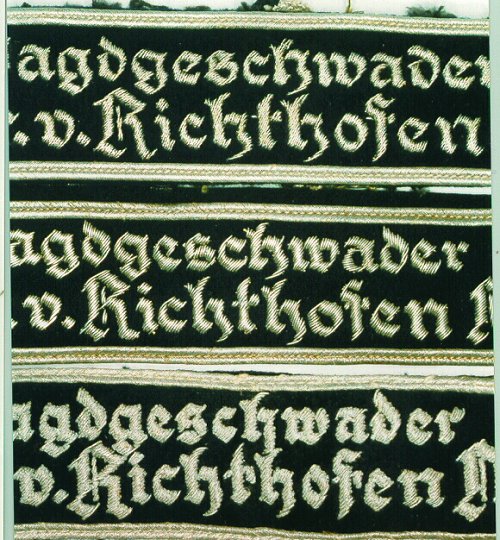 agdgeschwader
. v. Richthofen
agdgeschwader
. v. Richthofen
agdgeschwader
v. Richthofen